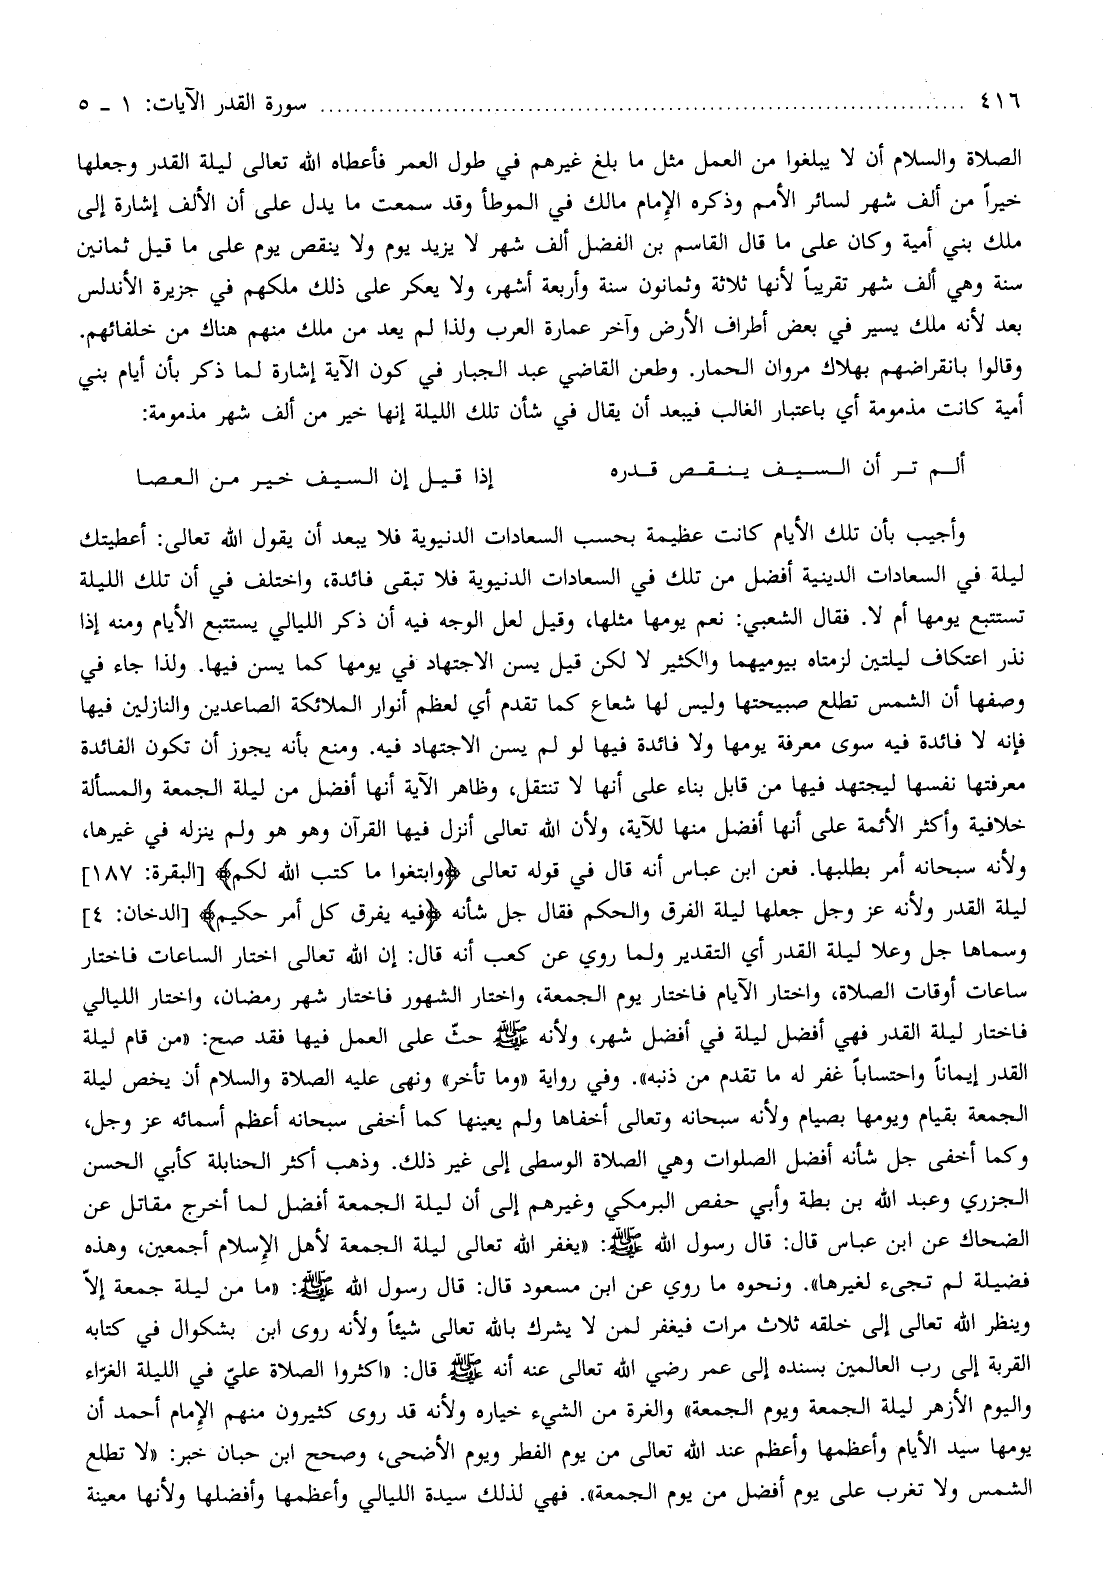 ٤١٦ ........................................ سورة القدر الآيات: ١ ـ ٥
الصلاة والسلام أن لا يبلغوا من العمل مثل ما بلغ غيرهم في طول العمر فأعطاه الله تعالى ليلة القدر وجعلها
خيراً من ألف شهر لسائر الأمم وذكره الإمام مالك في الموطأ وقد سمعت ما يدل على أن الألف إشارة إلى
ملك بني أمية وكان على ما قال القاسم بن الفضل ألف شهر لا يزيد يوم ولا ينقص يوم على ما قيل ثمانين
سنة وهي ألف شهر تقريباً لأنها ثلاثة وثمانون سنة وأربعة أشهر، ولا يعكر على ذلك ملكهم في جزيرة الأندلس
بعد لأنه ملك يسير في بعض أطراف الأرض وآخر عمارة العرب ولذا لم يعد من ملك منهم هناك من خلفائهم.
وقالوا بانقراضهم بهلاك مروان الحمار. وطعن القاضي عبد الجبار في كون الآية إشارة لما ذكر بأن أيام بني
أمية كانت مذمومة أي باعتبار الغالب فيبعد أن يقال في شأن تلك الليلة إنها خير من ألف شهر مذمومة:
ألم تر أن السيف ينقص قدره إذا قيل إن السيف خير من العصا
وأجيب بأن تلك الأيام كانت عظيمة بحسب السعادات الدنيوية فلا يبعد أن يقول الله تعالى: أعطيتك
ليلة في السعادات الدينية أفضل من تلك في السعادات الدنيوية فلا تبقى فائدة، واختلف في أن تلك الليلة
تستتبع يومها أم لا. فقال الشعبي: نعم يومها مثلها، وقيل لعل الوجه فيه أن ذكر الليالي يستتبع الأيام ومنه إذا
نذر اعتكاف ليلتين لزمتاه بيوميهما والكثير لا لكن قيل يسن الاجتهاد في يومها كما يسن فيها. ولذا جاء في
وصفها أن الشمس تطلع صبيحتها وليس لها شعاع كما تقدم أي لعظم أنوار الملائكة الصاعدين والنازلين فيها
فإنه لا فائدة فيه سوى معرفة يومها ولا فائدة فيها لو لم يسن الاجتهاد فيه. ومنع بأنه يجوز أن تكون الفائدة
معرفتها نفسها ليجتهد فيها من قابل بناء على أنها لا تنتقل، وظاهر الآية أنها أفضل من ليلة الجمعة والمسألة
خلافية وأكثر الأئمة على أنها أفضل منها للآية، ولأن الله تعالى أنزل فيها القرآن وهو هو ولم ينزله في غيرها،
ولأنه سبحانه أمر بطلبها. فعن ابن عباس أنه قال في قوله تعالى ﴿وابتغوا ما كتب الله لكم﴾ [البقرة: ١٨٧]
ليلة القدر ولأنه عز وجل جعلها ليلة الفرق والحكم فقال جل شأنه ﴿فيه يفرق كل أمر حكيم﴾ [الدخان: ٤]
وسماها جل وعلا ليلة القدر أي التقدير ولما روي عن كعب أنه قال: إن الله تعالى اختار الساعات فاختار
ساعات أوقات الصلاة، واختار الأيام فاختار يوم الجمعة، واختار الشهور فاختار شهر رمضان، واختار الليالي
فاختار ليلة القدر فهي أفضل ليلة في أفضل شهر، ولأنه ﷺ حثّ على العمل فيها فقد صح: «من قام ليلة
القدر إيماناً واحتساباً غفر له ما تقدم من ذنبه». وفي رواية «وما تأخر» ونهى عليه الصلاة والسلام أن يخص ليلة
الجمعة بقيام ويومها بصيام ولأنه سبحانه وتعالى أخفاها ولم يعينها كما أخفى سبحانه أعظم أسمائه عز وجل،
وكما أخفى جل شأنه أفضل الصلوات وهي الصلاة الوسطى إلى غير ذلك. وذهب أكثر الحنابلة كأبي الحسن
الجزري وعبد الله بن بطة وأبي حفص البرمكي وغيرهم إلى أن ليلة الجمعة أفضل لما أخرج مقاتل عن
الضحاك عن ابن عباس قال: قال رسول الله ﷺ: «يغفر الله تعالى ليلة الجمعة لأهل الإسلام أجمعين، وهذه
فضيلة لم تجىء لغيرها». ونحوه ما روي عن ابن مسعود قال: قال رسول الله ﷺ: «ما من ليلة جمعة إلاّ
وينظر الله تعالى إلى خلقه ثلاث مرات فيغفر لمن لا يشرك بالله تعالى شيئاً ولأنه روى ابن بشكوال في كتابه
القربة إلى رب العالمين بسنده إلى عمر رضي الله تعالى عنه أنه ﷺ قال: «اكثروا الصلاة عليّ في الليلة الغرّاء
واليوم الأزهر ليلة الجمعة ويوم الجمعة» والغرة من الشيء خياره ولأنه قد روى كثيرون منهم الإمام أحمد أن
يومها سيد الأيام وأعظمها وأعظم عند الله تعالى من يوم الفطر ويوم الأضحى، وصحح ابن حبان خبر: «لا تطلع
الشمس ولا تغرب على يوم أفضل من يوم الجمعة». فهي لذلك سيدة الليالي وأعظمها وأفضلها ولأنها معينة